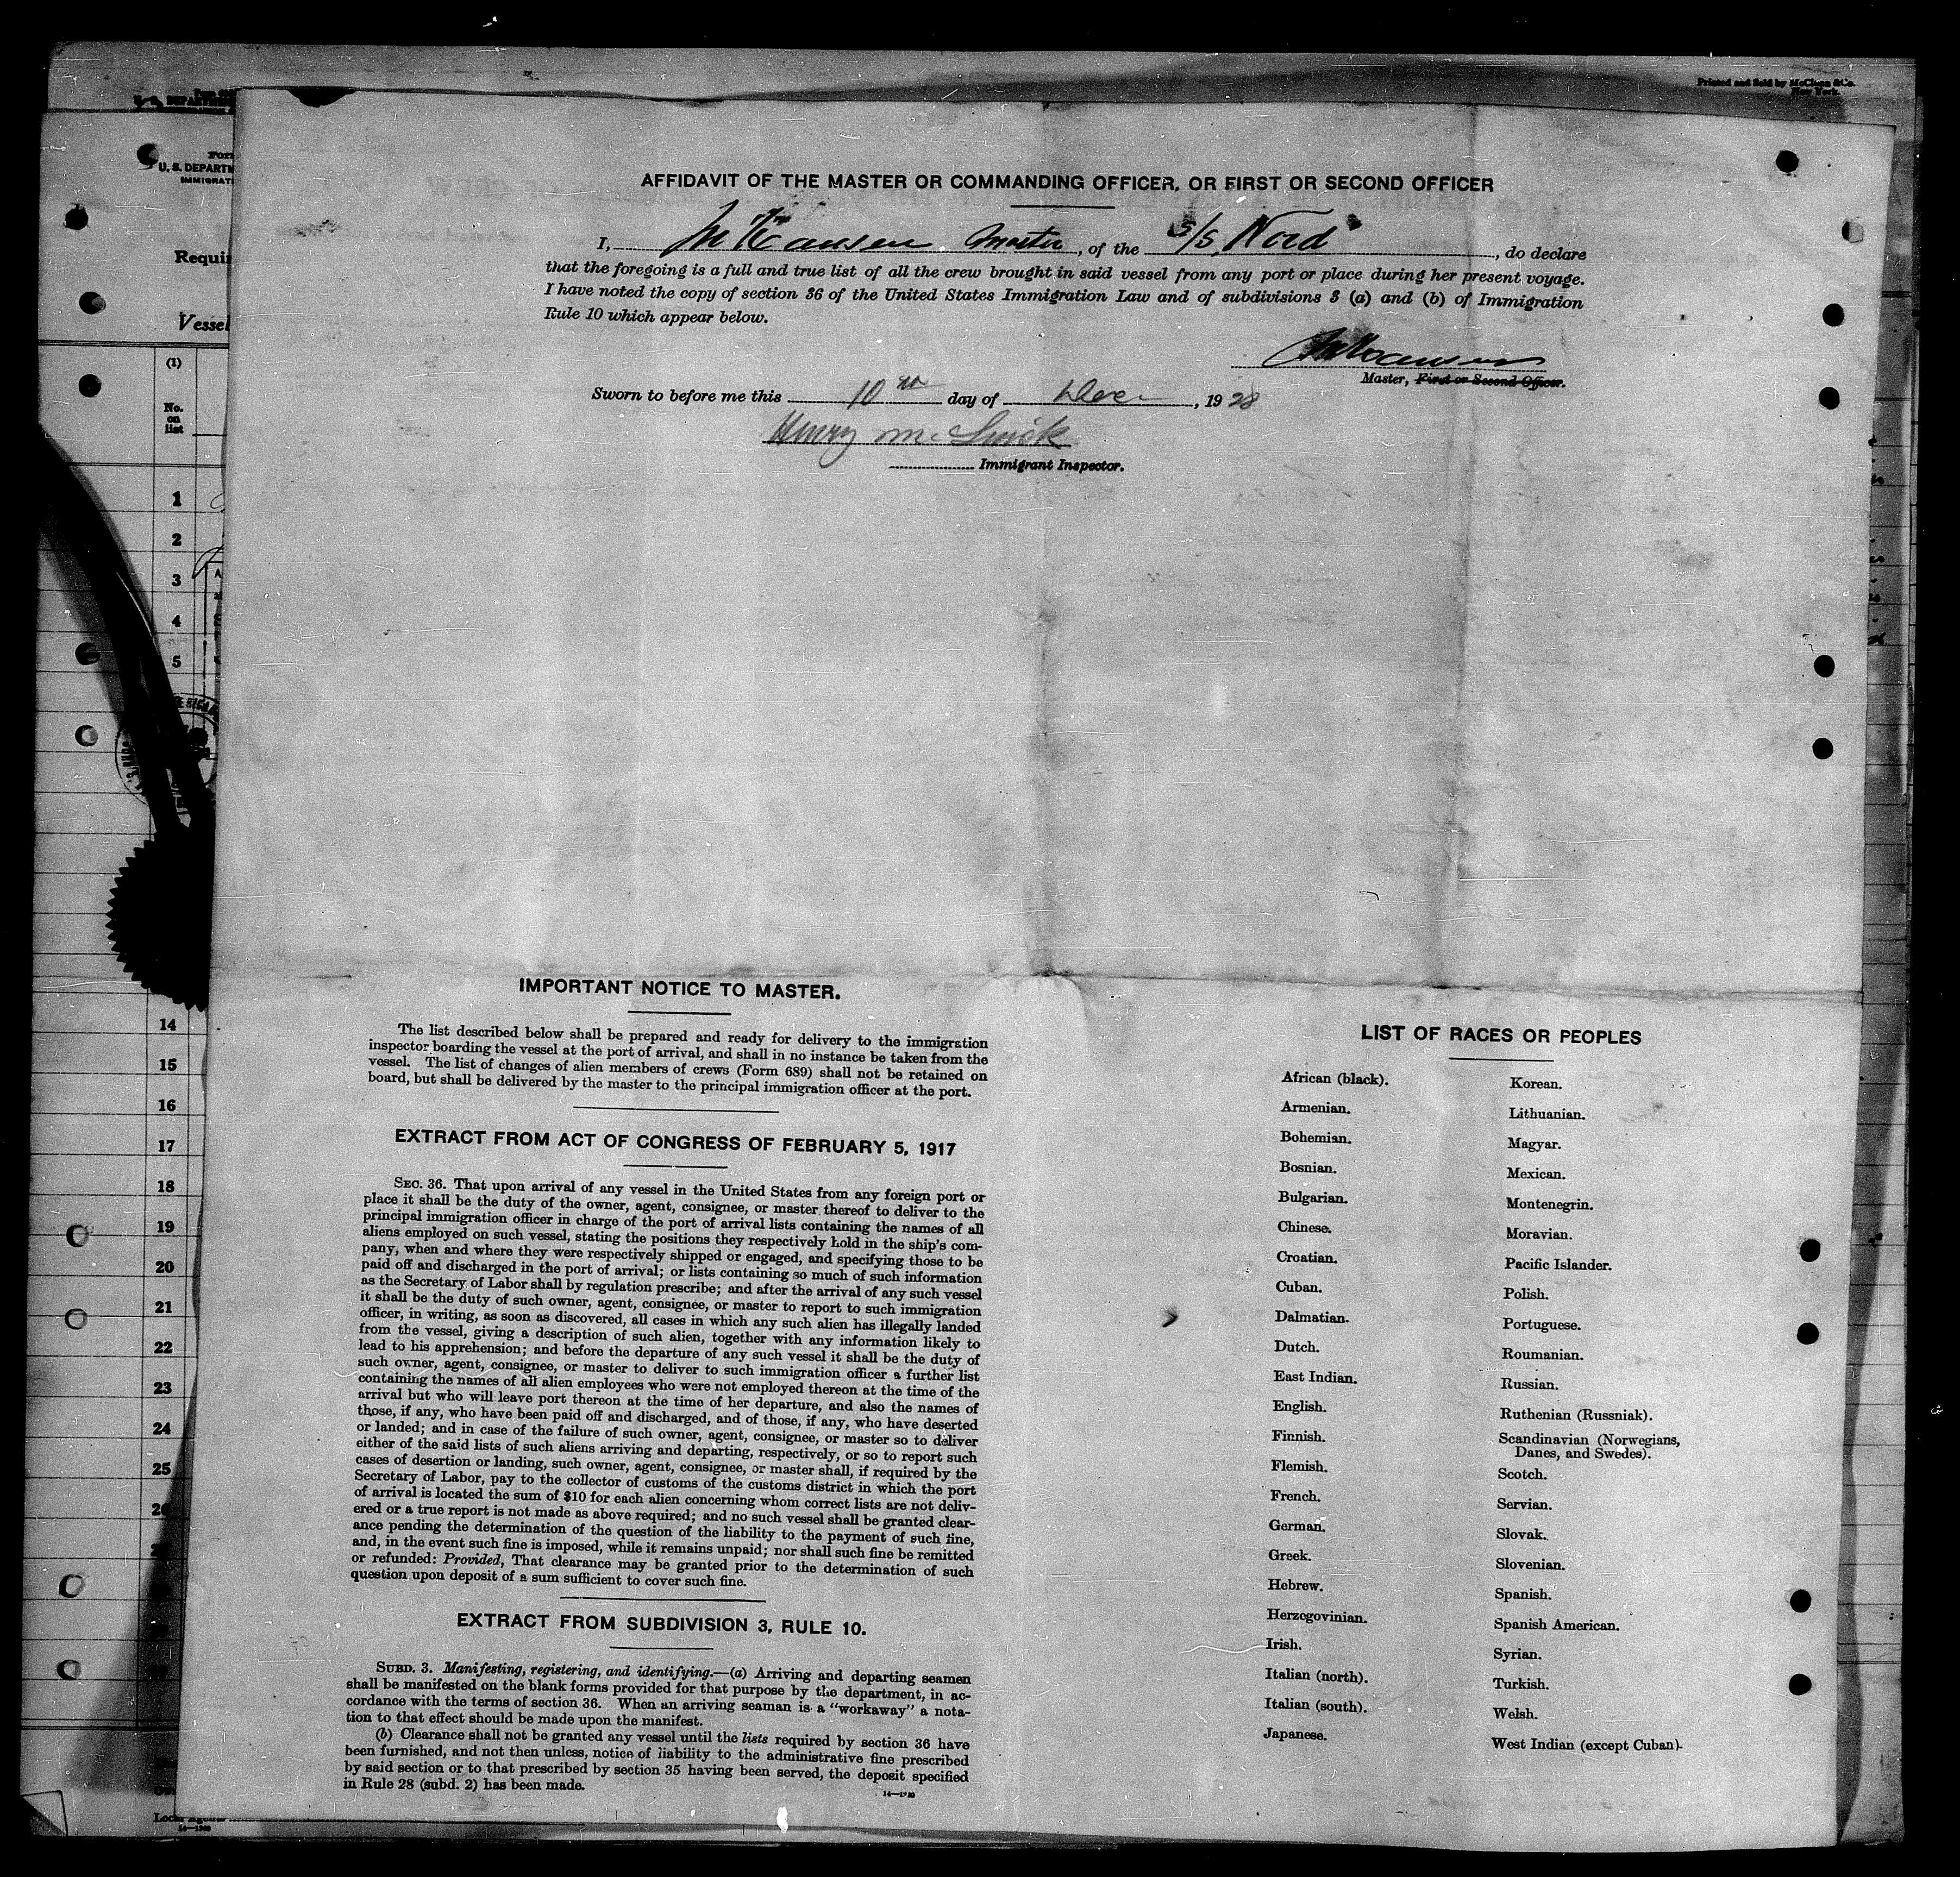 Printed and Sold by McClunn & Co.
New York.
U. S. DEPARTM
IMMIGRATI
Requi
Vessel
(1)
No.
on
list
1
2
3
4
5
14
15
16
17
18
19
20
21
22
23
24
25
26
AFFIDAVIT OF THE MASTER OR COMMANDING OFFICER, OR FIRST OR SECOND OFFICER
I, Hansen Master, of the S/S Nord, do declare
that the foregoing is a full and true list of all the crew brought in said vessel from any port or place during her present voyage.
I have noted the copy of section 36 of the United States Immigration Law and of subdivisions 3 (a) and (b) of Immigration
Rule 10 which appear below.
Master, First or Second Officer.
Sworn to before me this 10 day of Dec, 1928
Henry
Immigrant Inspector.
IMPORTANT NOTICE TO MASTER.
The list described below shall be prepared and ready for delivery to the immigration
inspector boarding the vessel at the port of arrival, and shall in no instance be taken from the
vessel. The list of changes of alien members of crews (Form 689) shall not be retained on
board, but shall be delivered by the master to the principal immigration officer at the port.
EXTRACT FROM ACT OF CONGRESS OF FEBRUARY 5, 1917
SEC. 36. That upon arrival of any vessel in the United States from any foreign port or
place it shall be the duty of the owner, agent, consignee, or master thereof to deliver to the
principal immigration officer in charge of the port of arrival lists containing the names of all
aliens employed on such vessel, stating the positions they respectively hold in the ship's com-
pany, when and where they were respectively shipped or engaged, and specifying those to be
paid off and discharged in the port of arrival; or lists containing so much of such information
as the Secretary of Labor shall by regulation prescribe; and after the arrival of any such vessel
it shall be the duty of such owner, agent, consignee, or master to report to such immigration
officer, in writing, as soon as discovered, all cases in which any such alien has illegally landed
from the vessel, giving a description of such alien, together with any information likely to
lead to his apprehension; and before the departure of any such vessel it shall be the duty of
such owner, agent, consignee, or master to deliver to such immigration officer a further list
containing the names of all alien employees who were not employed thereon at the time of the
arrival but who will leave port thereon at the time of her departure, and also the names of
those, if any, who have been paid off and discharged, and of those, if any, who have deserted
or landed; and in case of the failure of such owner, agent, consignee, or master so to deliver
either of the said lists of such aliens arriving and departing, respectively, or so to report such
cases of desertion or landing, such owner, agent, consignee, or master shall, if required by the
Secretary of Labor, pay to the collector of customs of the customs district in which the port
of arrival is located the sum of $10 for each alien concerning whom correct lists are not deliv-
ered or a true report is not made as above required; and no such vessel shall be granted clear-
ance pending the determination of the question of the liability to the payment of such fine,
and, in the event such fine is imposed, while it remains unpaid; nor shall such fine be remitted
or refunded: Provided, That clearance may be granted prior to the determination of such
question upon deposit of a sum sufficient to cover such fine.
EXTRACT FROM SUBDIVISION 3, RULE 10.
SUBD. 3. Manifesting, registering, and identifying.—(a) Arriving and departing seamen
shall be manifested on the blank forms provided for that purpose by the department, in ac-
cordance with the terms of section 36. When an arriving seaman is a "workaway" a nota-
tion to that effect should be made upon the manifest.
(b) Clearance shall not be granted any vessel until the lists required by section 36 have
been furnished, and not then unless, notice of liability to the administrative fine prescribed
by said section or to that prescribed by section 35 having been served, the deposit specified
in Rule 28 (subd. 2) has been made.
LIST OF RACES OR PEOPLES
African (black).
Armenian.
Bohemian.
Bosnian.
Bulgarian.
Chinese.
Croatian.
Cuban.
Dalmatian.
Dutch.
East Indian.
English.
Finnish.
Flemish.
French.
German.
Greek.
Hebrew.
Herzegovinian.
Irish.
Italian (north).
Italian (south).
Japanese.
Korean.
Lithuanian.
Magyar.
Mexican.
Montenegrin.
Moravian.
Pacific Islander.
Polish.
Portuguese.
Roumanian.
Russian.
Ruthenian (Russniak).
Scandinavian (Norwegians,
Danes, and Swedes).
Scotch.
Servian.
Slovak.
Slovenian.
Spanish.
Spanish American.
Syrian.
Turkish.
Welsh.
West Indian (except Cuban).